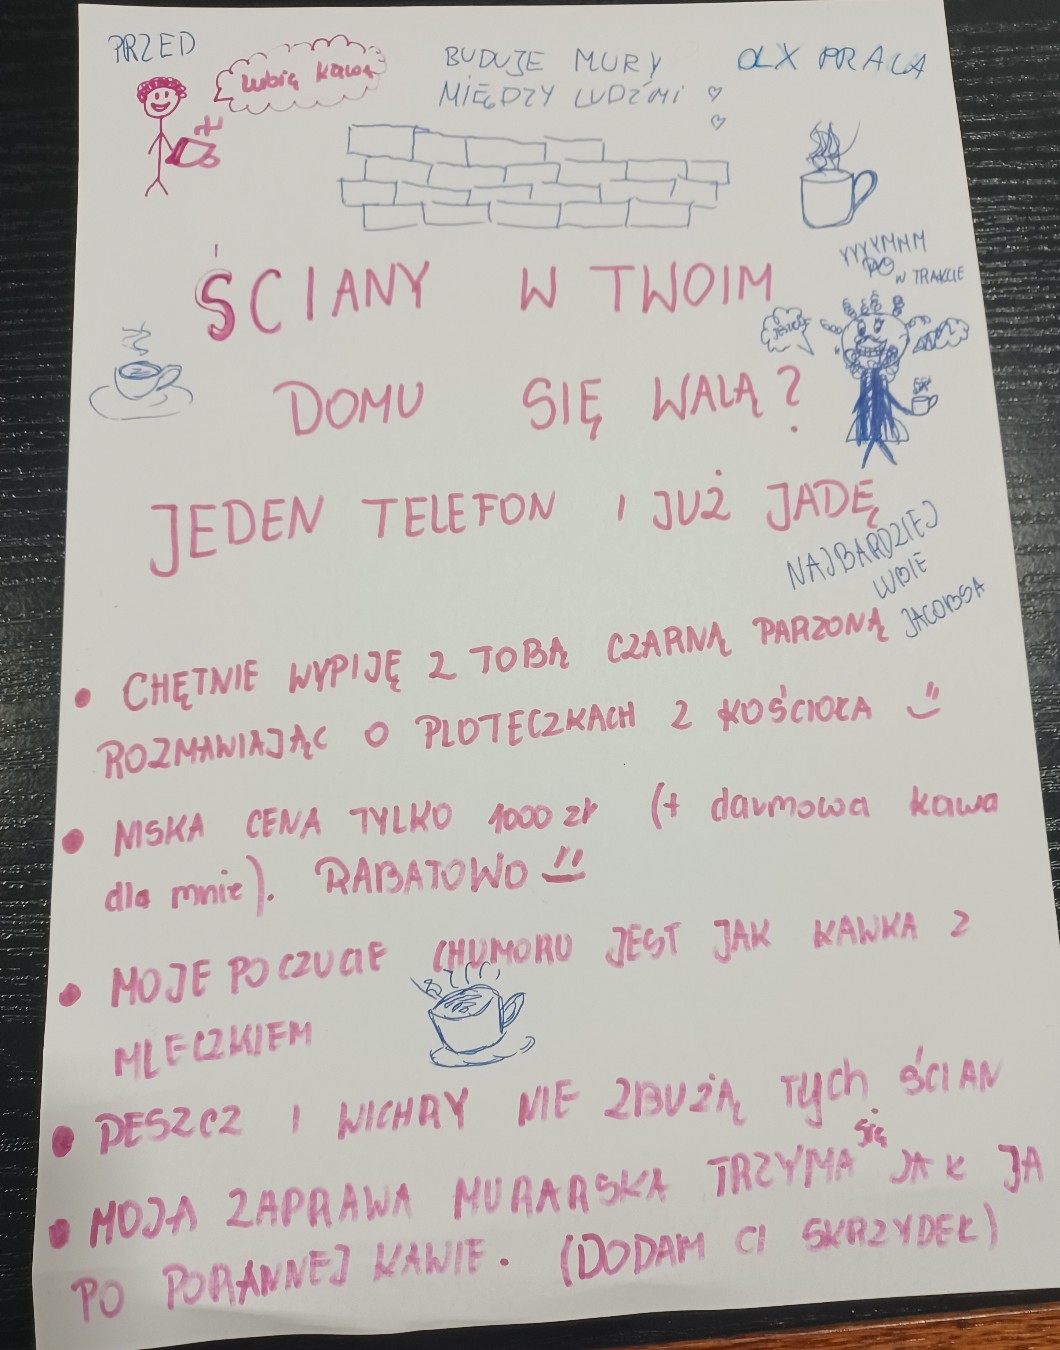 PRZED
lubię kawę
BUDUJE MURY
MIĘDZY LUDŹMI
OLX PRACA
ŚCIANY W TWOIM
YYYYMMM
PO
W TRAKCIE
DOMU SIĘ WALĄ?
JEDEN TELEFON I JUŻ JADĘ
NAJBARDZIEJ
LUBIE
JACOBSA
• CHĘTNIE WYPIJĘ Z TOBĄ CZARNĄ PARZONĄ
ROZMAWIAJĄC O PLOTECZKACH Z KOŚCIOŁA
• NISKA CENA TYLKO 1000 zł (+ darmowa kawa
dla mnie). RABATOWO
• MOJE POCZUCIE CHUMORU JEST JAK KAWKA Z
MLECZKIEM
• DESZCZ I WICHRY NIE ZBUŻĄ TYCH ŚCIAN
• MOJA ZAPRAWA MURARSKA TRZYMA się JAK JA
PO PORANNEJ KAWIE. (DODAM CI SKRZYDEŁ)